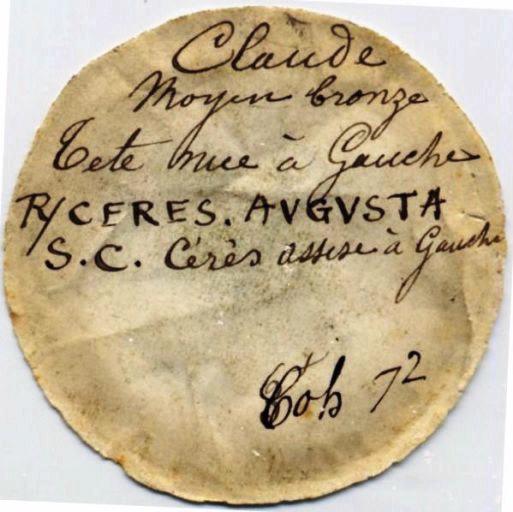 Claude
Moyen bronze
Tete nue à Gauche
R/ CERES. AVGVSTA
S.C. Cérès assise à Gauche
Coh 72